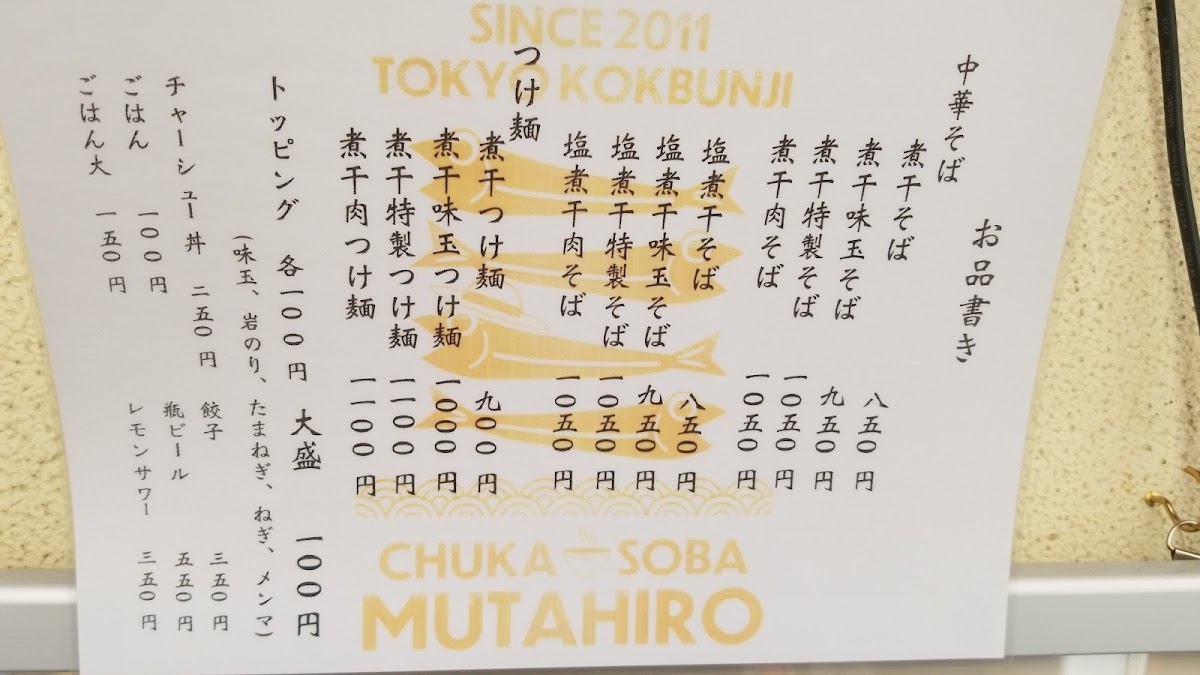 お品書き
中華そば
煮干そば 八五〇円
煮干味玉そば 九五〇円
煮干特製そば 一〇五〇円
煮干肉そば 一〇五〇円
塩煮干そば 八五〇円
塩煮干味玉そば 九五〇円
塩煮干特製そば 一〇五〇円
塩煮干肉そば 一〇五〇円
つけ麺
煮干つけ麺 九〇〇円
煮干味玉つけ麺 一〇〇〇円
煮干特製つけ麺 一一〇〇円
煮干肉つけ麺 一一〇〇円
トッピング 各一〇〇円 大盛 一〇〇円
(味玉、岩のり、たまねぎ、ねぎ、メンマ)
チャーシュー丼 二五〇円
ごはん 一〇〇円
ごはん大 一五〇円
餃子 三五〇円
瓶ビール 五五〇円
レモンサワー 三五〇円
SINCE 2011
TOKYO KOKBUNJI
CHUKA SOBA
MUTAHIRO